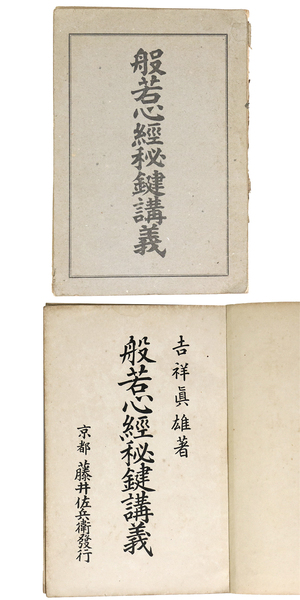 般若心經秘鍵講義
吉祥眞雄著
般若心經秘鍵講義
京都 藤井佐兵衞發行